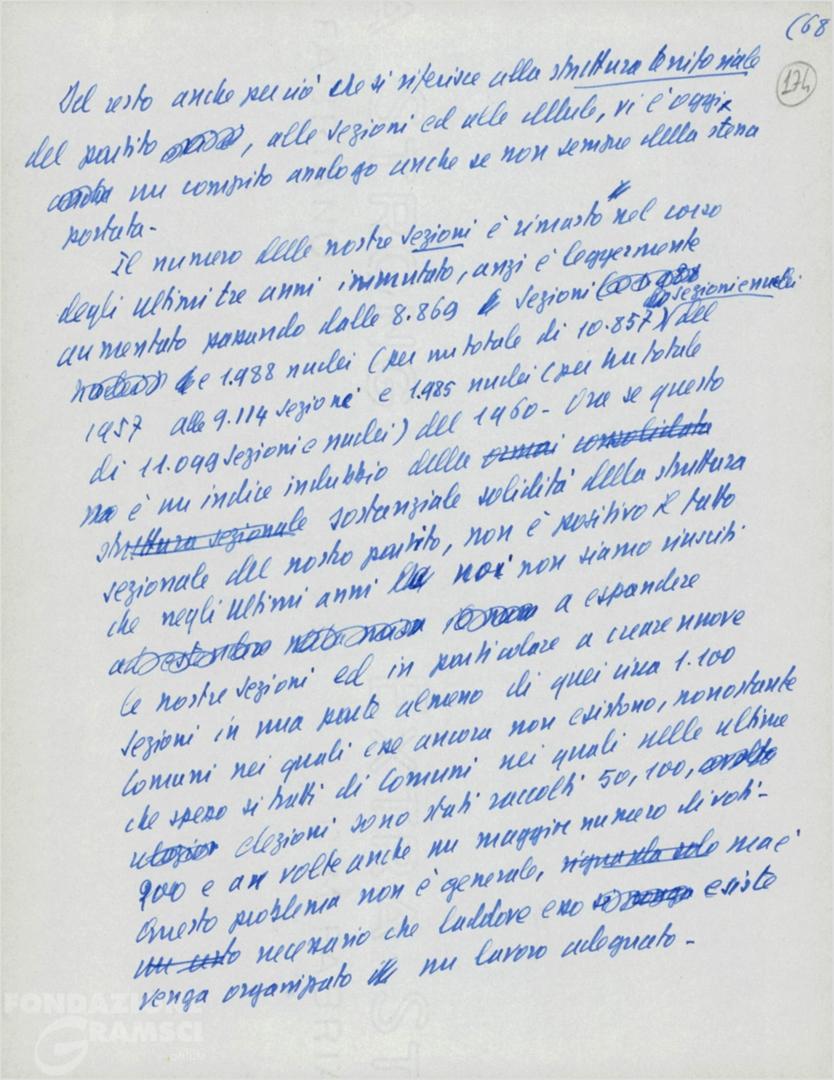 (68
174
Del resto anche per ciò che si riferisce alla struttura territoriale
del partito, alle sezioni ed alle cellule, vi è oggi
un compito analogo anche se non sempre della stessa
portata -
Il numero delle nostre sezioni è rimasto nel corso
degli ultimi tre anni immutato, anzi è leggermente
aumentato passando dalle 8.869 sezioni
e 1.988 nuclei (per un totale di 10.857 sezioni e nuclei) del
1957 alle 9.114 sezioni e 1.985 nuclei (per un totale
di 11.099 sezioni e nuclei) del 1960 - Ora se questo
è un indice indubbio della ormai consolidata
struttura sezionale sostanziale solidità della struttura
sezionale del nostro partito, non è positivo il fatto
che negli ultimi anni noi non siamo riusciti
a espandere
le nostre sezioni ed in particolare a creare nuove
sezioni in una parte almeno di quei circa 1.100
Comuni nei quali esse ancora non esistono, nonostante
che spesso si tratti di Comuni nei quali nelle ultime
elezioni sono stati raccolti 50, 100,
200 e a volte anche un maggior numero di voti -
Questo problema non è generale, riguarda solo ma è
necessario che laddove esso esiste
venga organizzato un lavoro adeguato -
FONDAZIONE
GRAMSCI